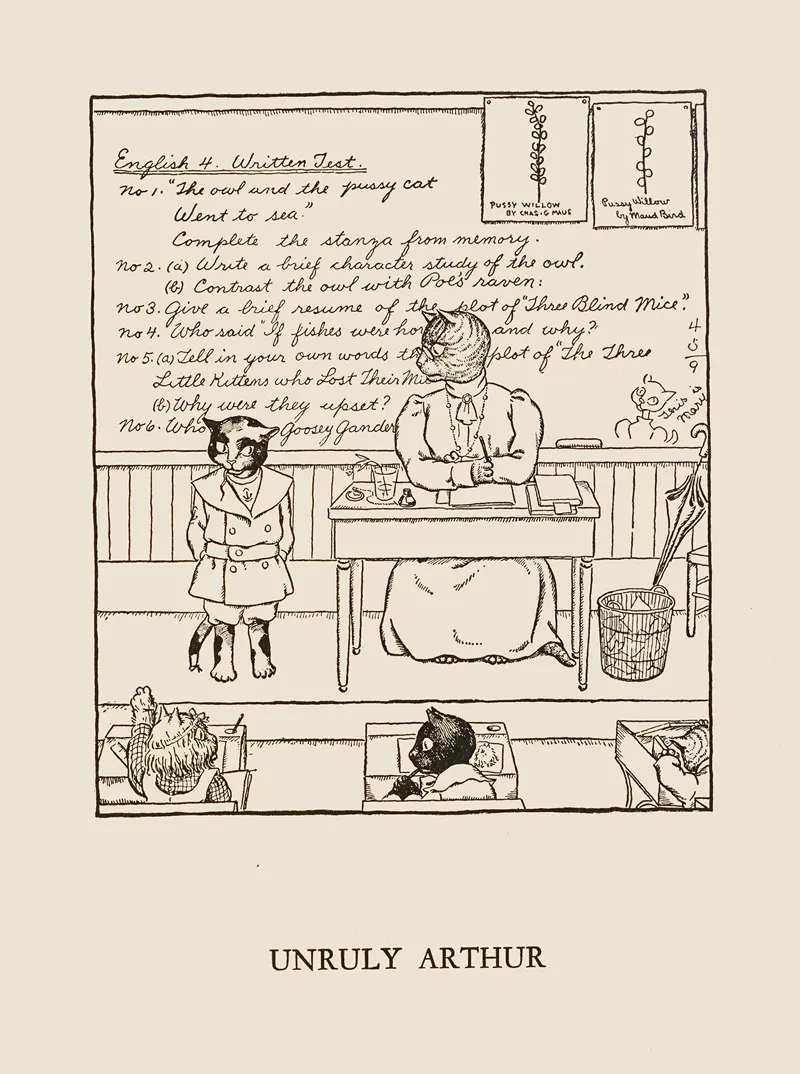 English 4. Written Test.
No 1. "The owl and the pussy cat
Went to sea."
Complete the stanza from memory.
No 2. (a) Write a brief character study of the owl.
(b) Contrast the owl with Poe's raven:
No 3. Give a brief resume of the plot of "Three Blind Mice".
No 4. Who said "If fishes were ho and why?
No 5. (a) Tell in your own words th plot of "The Three
Little Kittens who Lost Their Mi
(b) Why were they upset?
No 6. Who Goosey Gander
PUSSY WILLOW
BY CHAS. G MAUS
Pussy Willow
by Maud Bird
4
5
9
This is
Mary
UNRULY ARTHUR